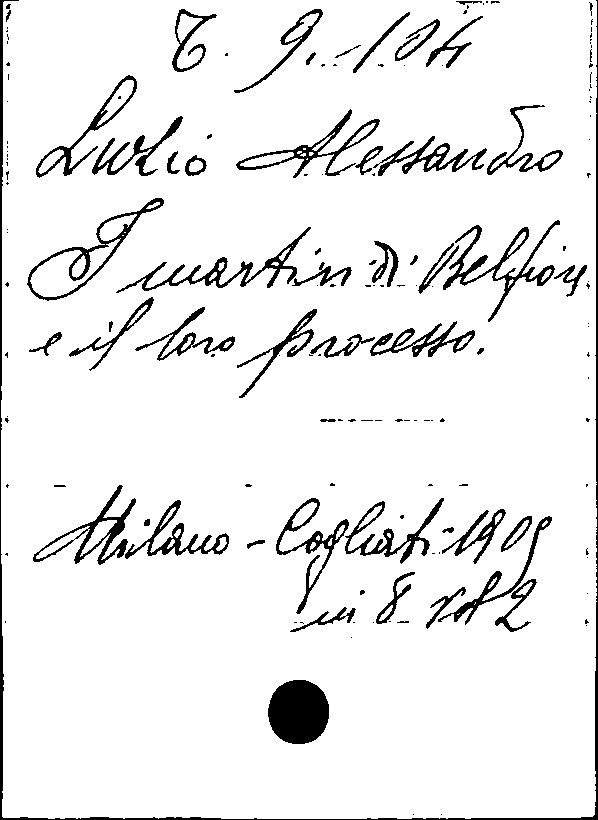 T. 9.-104
Luzio Alessandro
I martiri di Belfiore
e il loro processo.
Milano - Cogliati - 1905
in 8 vol 2